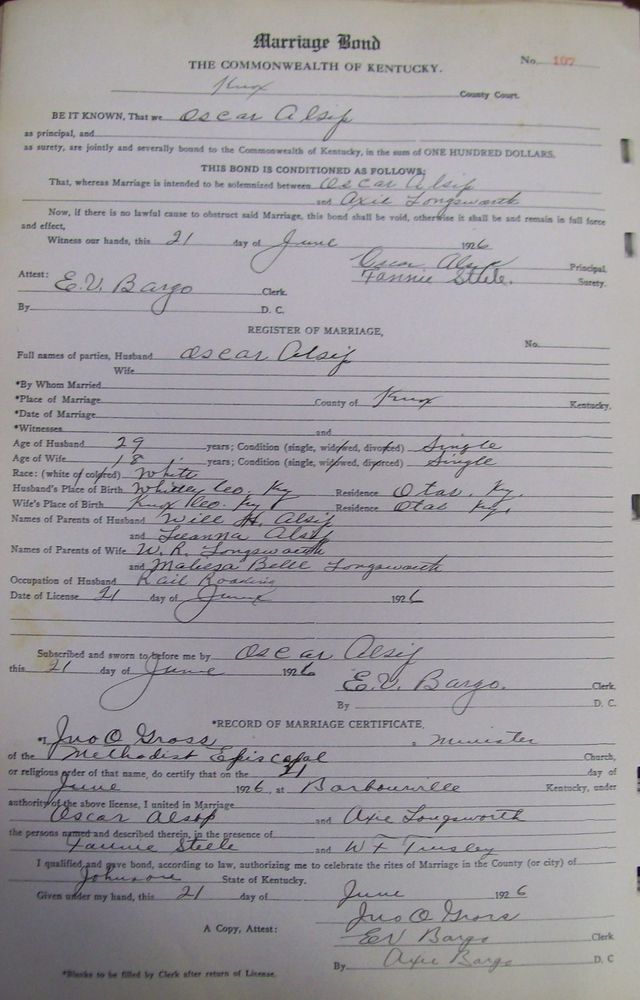 Marriage Bond
THE COMMONWEALTH OF KENTUCKY.
No. 107
Knox County Court.
BE IT KNOWN, That we Oscar Alsip
as principal, and
as surety, are jointly and severally bound to the Commonwealth of Kentucky, in the sum of ONE HUNDRED DOLLARS.
THIS BOND IS CONDITIONED AS FOLLOWS:
That, whereas Marriage is intended to be solemnized between Oscar Alsip
and Axie Longsworth
Now, if there is no lawful cause to obstruct said Marriage, this bond shall be void, otherwise it shall be and remain in full force
and effect,
Witness our hands, this 21 day of June 1926
Oscar Alsip Principal.
Fannie Steele. Surety.
Attest: E.V. Bargo Clerk.
By D. C.
REGISTER OF MARRIAGE,
No.
Full names of parties, Husband Oscar Alsip
Wife
*By Whom Married
*Place of Marriage County of Knox Kentucky.
*Date of Marriage
*Witnesses and
Age of Husband 29 years; Condition (single, widowed, divorced) Single
Age of Wife 18 years; Condition (single, widowed, divorced) Single
Race: (white of colored) White
Husband's Place of Birth Whitley Co, Ky Residence Otas, Ky.
Wife's Place of Birth Knox Co. Ky Residence Otas Ky.
Names of Parents of Husband Will H. Alsip
and Leanna Alsip
Names of Parents of Wife W. R. Longsworth
and Malissa Belle Longsworth
Occupation of Husband Rail Roading
Date of License 21 day of June 1926
Subscribed and sworn to before me by Oscar Alsip
this 21 day of June 1926
E.V. Bargo. Clerk,
By D. C.
*RECORD OF MARRIAGE CERTIFICATE.
*I, Jno O Gross a minister
of the Methodist Episcopal Church,
or religious order of that name, do certify that on the 21 day of
June 1926, at Barbourville Kentucky, under
authority of the above license, I united in Marriage
Oscar Alsop and Axie Longsworth
the persons named and described therein, in the presence of
Fannie Steele and W F Tinsley
I qualified and gave bond, according to law, authorizing me to celebrate the rites of Marriage in the County (or city) of
Johnson State of Kentucky.
Given under my hand, this 21 day of June 1926
Jno O Gross
A Copy, Attest: EV Bargo Clerk
By Axie Bargo D. C
*Blanks to be filled by Clerk after return of License.